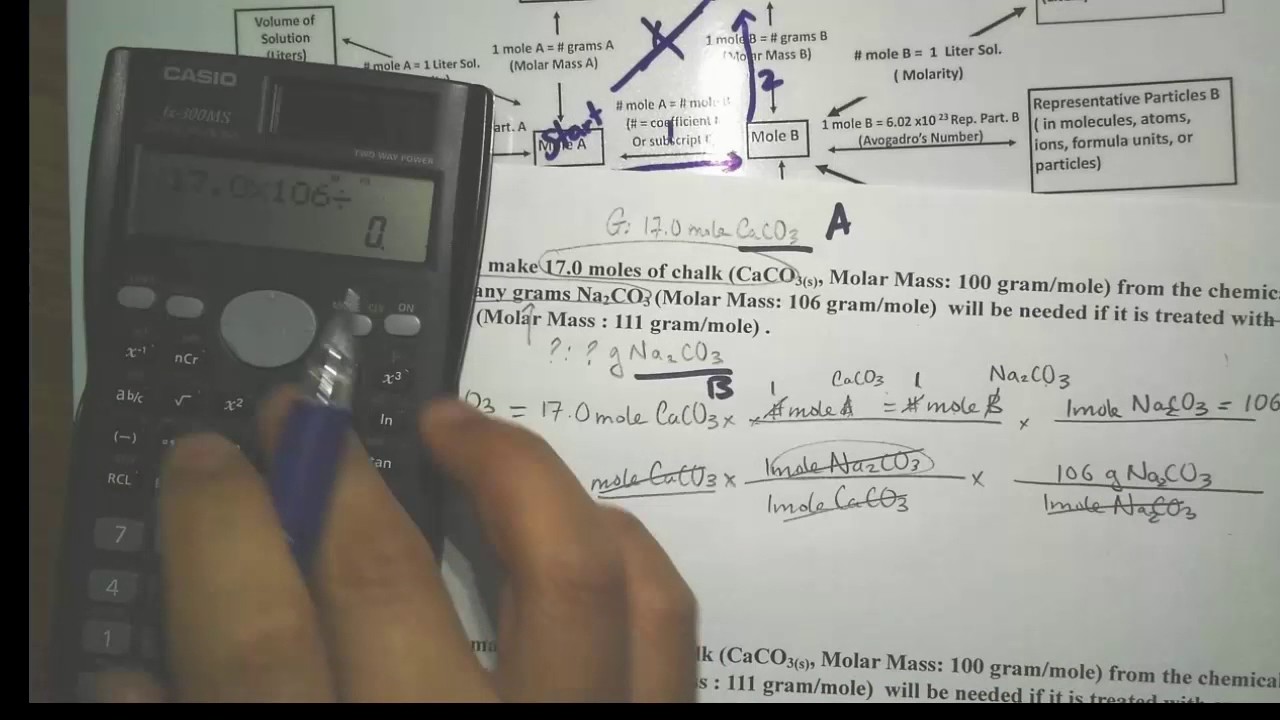 Volume of
Solution
(Liters)
1 mole A = # grams A
(Molar Mass A)
# mole A = 1 Liter Sol.
1 mole B = # grams B
(Molar Mass B)
# mole B = 1 Liter Sol.
( Molarity)
# mole A = # mole B
(# = coefficient
Or subscript
art. A
Start
Mole A
1
2
Mole B
1 mole B = 6.02 x10 23 Rep. Part. B
(Avogadro's Number)
Representative Particles B
( in molecules, atoms,
ions, formula units, or
particles)
CASIO
fx-300MS
TWO WAY POWER
17.0×106÷
0.
ON
x⁻¹ nCr x³
ab/c √ x² ln
(−) tan
RCL
7
4
1
G: 17.0 mole CaCO3 A
make 17.0 moles of chalk (CaCO3(s), Molar Mass: 100 gram/mole) from the chemic
any grams Na2CO3 (Molar Mass: 106 gram/mole) will be needed if it is treated with
(Molar Mass : 111 gram/mole) .
?: ? g Na2CO3
B
1 CaCO3 1 Na2CO3
O3 = 17.0 mole CaCO3 x # mole A = # mole B x 1mole Na2CO3 = 106
mole CaCO3 x 1mole Na2CO3 x 106 g Na2CO3
1mole CaCO3 1mole Na2CO3
lk (CaCO3(s), Molar Mass: 100 gram/mole) from the chemical
s : 111 gram/mole) will be needed if it is treated with